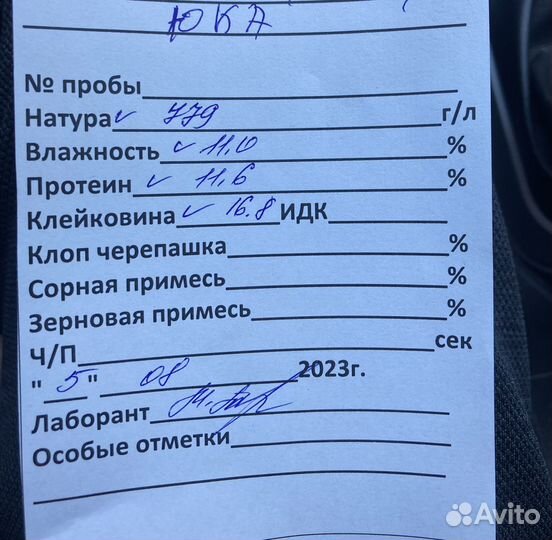 ЮКА
№ пробы
Натура ✓ 779 г/л
Влажность ✓ 11,0 %
Протеин ✓ 11,6 %
Клейковина ✓ 16.8 ИДК
Клоп черепашка %
Сорная примесь %
Зерновая примесь %
Ч/П сек
"5" 08 2023г.
Лаборант
Особые отметки
Avito